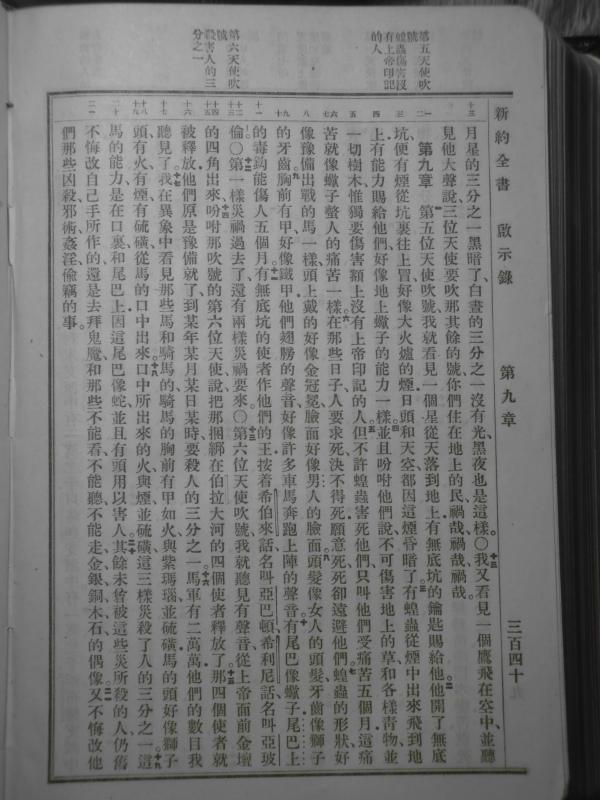 新約全書　啟示錄　第九章　三百四十九
第五天使吹
號
蝗蟲傷害沒
有上帝印記
的人
第六天使吹
號
殺害人的三
分之一
月星的三分之一黑暗了白晝的三分之一沒有光黑夜也是這樣○我又看見一個鷹飛在空中並聽
見他大聲說三位天使要吹那其餘的號你們住在地上的民禍哉禍哉禍哉
第九章　第五位天使吹號我就看見一個星從天落到地上有無底坑的鑰匙賜給他他開了無底
坑便有煙從坑裏往上冒好像大火爐的煙日頭和天空都因這煙昏暗了有蝗蟲從煙中出來飛到地
上有能力賜給他們好像地上蠍子的能力一樣並且吩咐他們說不可傷害地上的草和各樣青物並
一切樹木惟獨要傷害額上沒有上帝印記的人但不許蝗蟲害死他們只叫他們受痛苦五個月這痛
苦就像蠍子螫人的痛苦一樣在那些日子人要求死決不得死願意死死卻遠避他們蝗蟲的形狀好
像豫備出戰的馬一樣頭上戴的好像金冠冕臉面好像男人的臉面頭髮像女人的頭髮牙齒像獅子
的牙齒胸前有甲好像鐵甲他們翅膀的聲音好像許多車馬奔跑上陣的聲音有尾巴像蠍子尾巴上
的毒鈎能傷人五個月有無底坑的使者作他們的王按着希伯來話名叫亞巴頓希利尼話名叫亞玻
倫○第一樣災禍過去了還有兩樣災禍要來○第六位天使吹號我就聽見有聲音從上帝面前金壇
的四角出來吩咐那吹號的第六位天使說把那捆綁在伯拉大河的四個使者釋放了那四個使者就
被釋放他們原是豫備就了到某年某月某日某時要殺人的三分之一馬軍有二萬萬他們的數目我
聽見了我在異象中看見那些馬和騎馬的騎馬的胸前有甲如火與紫瑪瑙並硫磺馬的頭好像獅子
頭有火有煙有硫磺從馬的口中出來口中所出來的火與煙並硫磺這三樣災殺了人的三分之一這
馬的能力是在口裏和尾巴上因這尾巴像蛇並且有頭用以害人其餘未曾被這些災所殺的人仍舊
不悔改自己手所作的還是去拜鬼魔和那些不能看不能聽不能走金銀銅木石的偶像又不悔改他
們那些凶殺邪術姦淫偷竊的事